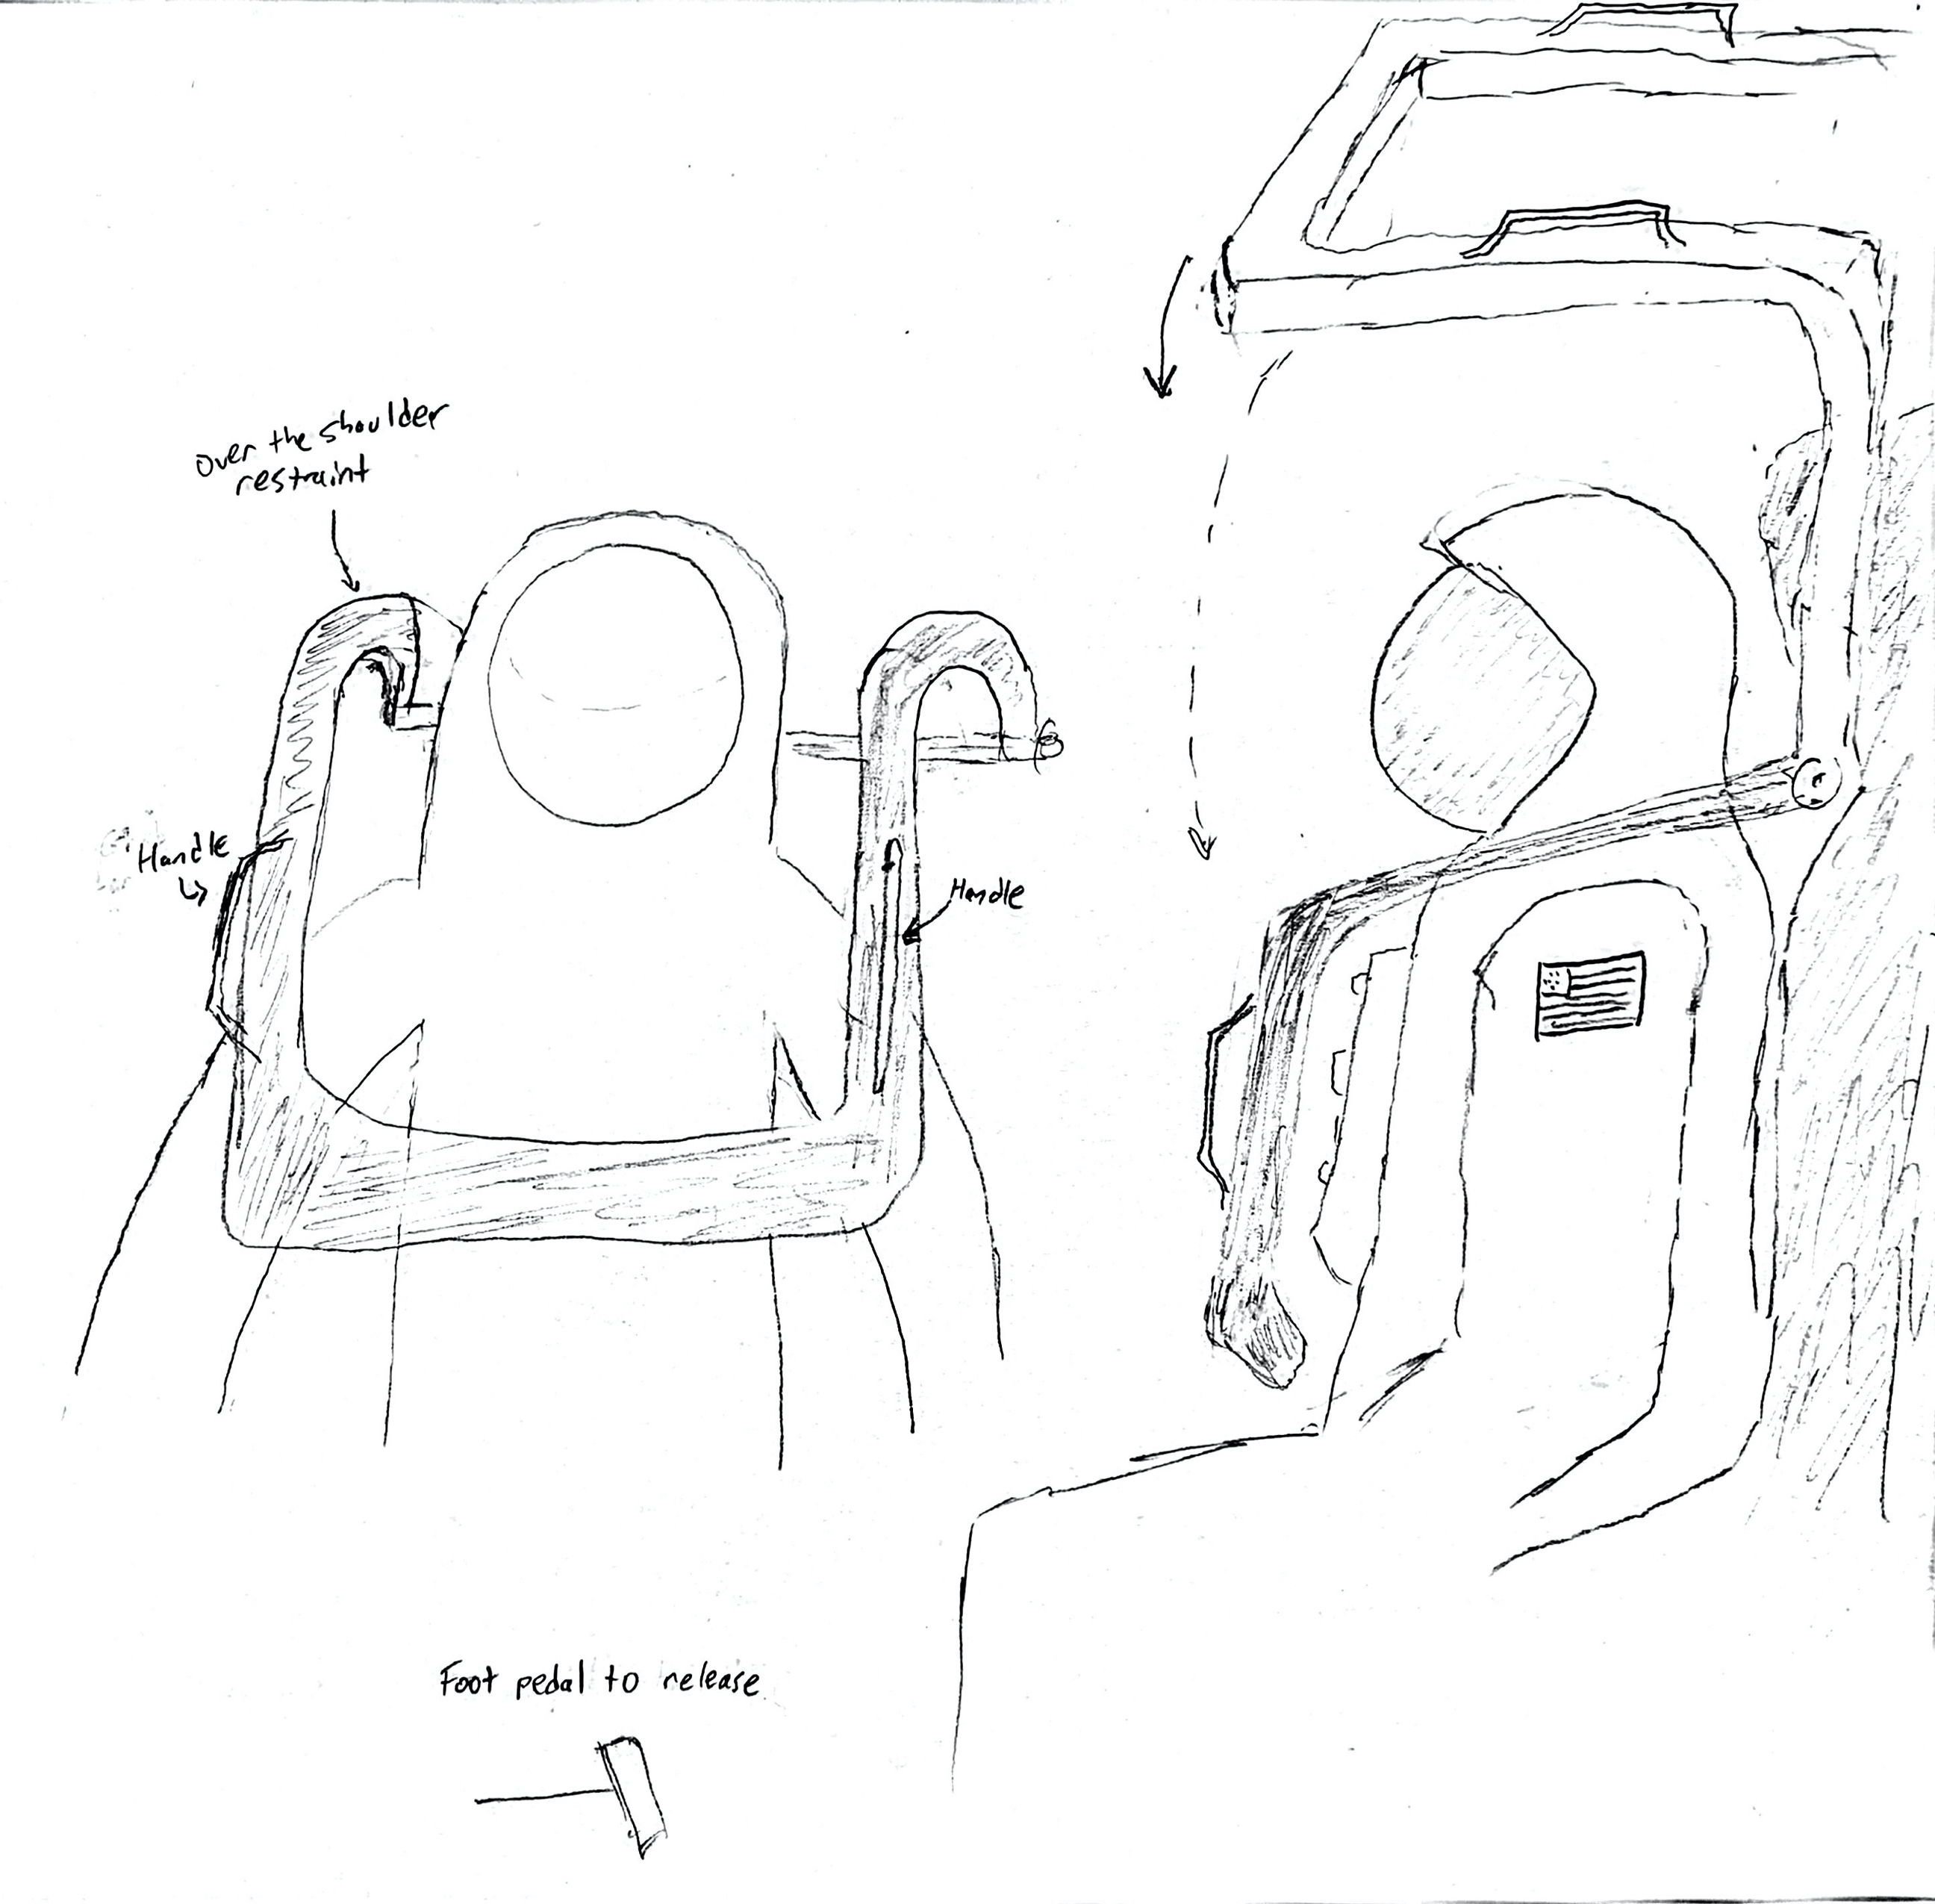 Over the shoulder
restraint
Handle
Handle
Foot pedal to release